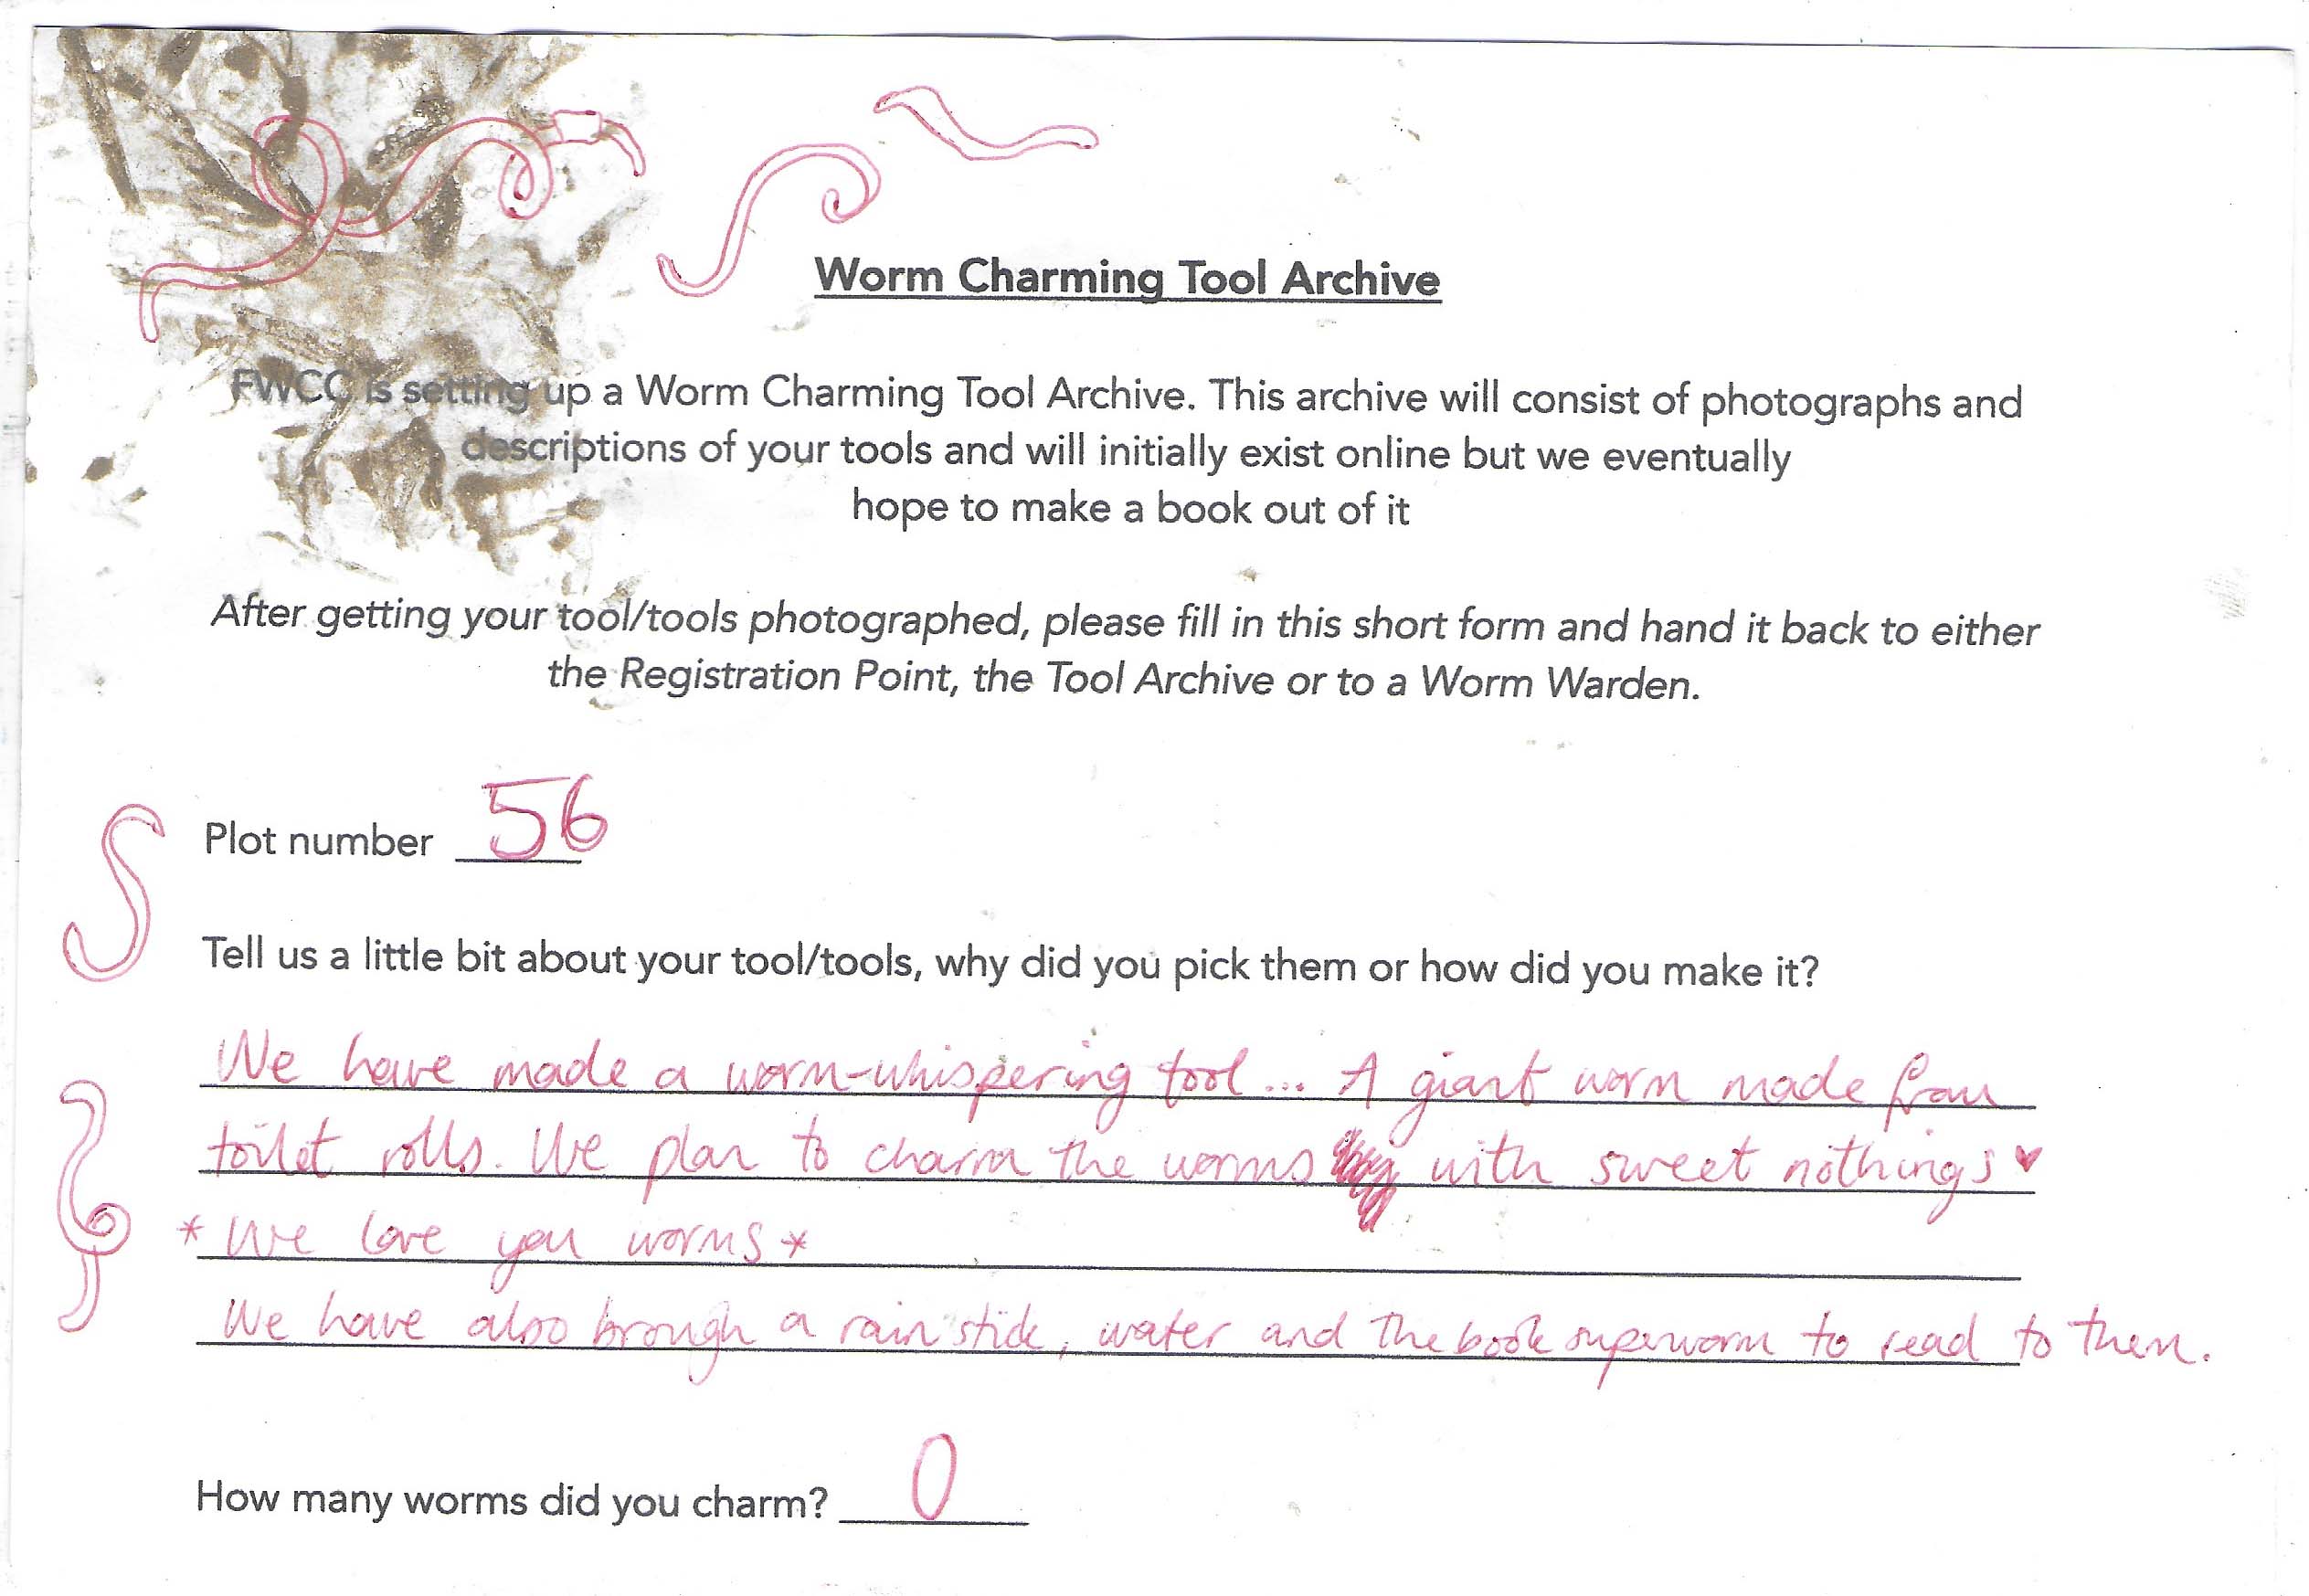 Worm Charming Tool Archive
FWCC is setting up a Worm Charming Tool Archive. This archive will consist of photographs and
descriptions of your tools and will initially exist online but we eventually
hope to make a book out of it
After getting your tool/tools photographed, please fill in this short form and hand it back to either
the Registration Point, the Tool Archive or to a Worm Warden.
Plot number 56
Tell us a little bit about your tool/tools, why did you pick them or how did you make it?
We have made a worm-whispering tool... A giant worm made from
toilet rolls. We plan to charm the worms with sweet nothings ♥
* We love you worms *
We have also brough a rain stick, water and the book superworm to read to them.
How many worms did you charm? 0